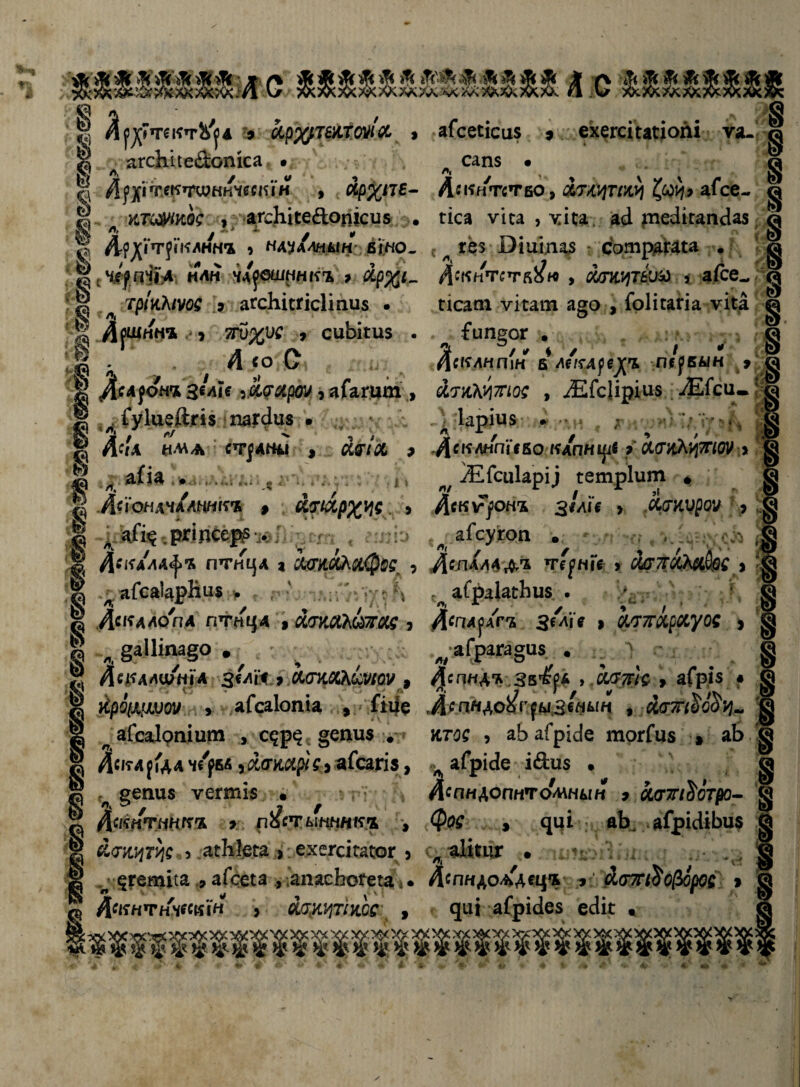 АС АС
Архїтектꙋ́ра , ἀρχιτεκτονία ,
architectonica .
Архїтектѡни́ческїй , ἀρχιτε-
κτωνικός , architectonicus .
Архїтрїкли́нъ , нача́лный вїно-
че́рпчїй или ча́рошникъ , ἀρχι-
τρίκλινος , architriclinus .
Арши́нъ , πῦχυς , cubitus .
А со С
Асаро́нъ зе́лїе , ἄσαρον , aſarum ,
ſylueſtris nardus .
А́сїа и́мѧ страны̀ , ἀσία ,
aſia .
Асїонача́лникъ , ἀσιάρχης ,
aſię princeps .
Аска́лафъ пти́ца , ἀσκάλαφος ,
aſcalaphus .
Аскало́па пти́ца , ἀσκαλώπας ,
gallinago .
Аскалѡ́нїа зе́лїе , ἀσκαλώνιον ,
κρόμμυον , aſcalonia , ſiue
aſcalonium , cępę genus .
Аскари́да че́рвь , ἀσκαρίς , aſcaris ,
genus vermis .
Аски́тникъ , пꙋсты́нникъ ,
ἀσκητής , athleta , exercitator ,
ęremita , aſceta , anachoreta .
Аскити́ческїй , ἀσκητικός ,
aſceticus , exercitationi va-
cans .
Аски́тство , ἀσκητικὴ ζωή , aſce-
tica vita , vita ad meditandas
rès Diuinas comparata .
Аски́тствꙋю , ἀσκητεύω , aſce-
ticam vitam ago , ſolitaria vità
fungor .
Асклипі́й в лѣ́карехъ пе́рвый ,
ἀσκλήπιος , Æſclipius Æſcu-
lapius .
Асклипїево ка́пище , ἀσκλήπιον ,
Æſculapij templum .
Аскѵ́ронъ зе́лїе , ἄσκυρον ,
aſcyron .
Аспала́дъ те́рнїе , ἀσπάλαθος ,
aſpalathus .
Аспара́гъ зе́лїе , ἀσπάραγος ,
aſparagus .
А́спидъ ѕвѣ́рь , ἀσπὶς , aſpis .
Аспидоꙋгрызе́ный , ἀσπιδοδη-
κτος , ab aſpide morſus , ab
aſpide ictus .
Аспидопито́мный , ἀσπιδοτρο-
φος , qui ab aſpidibus
alitur .
Аспидоѧ́децъ , ἀσπιδοβόρος ,
qui aſpides edit .